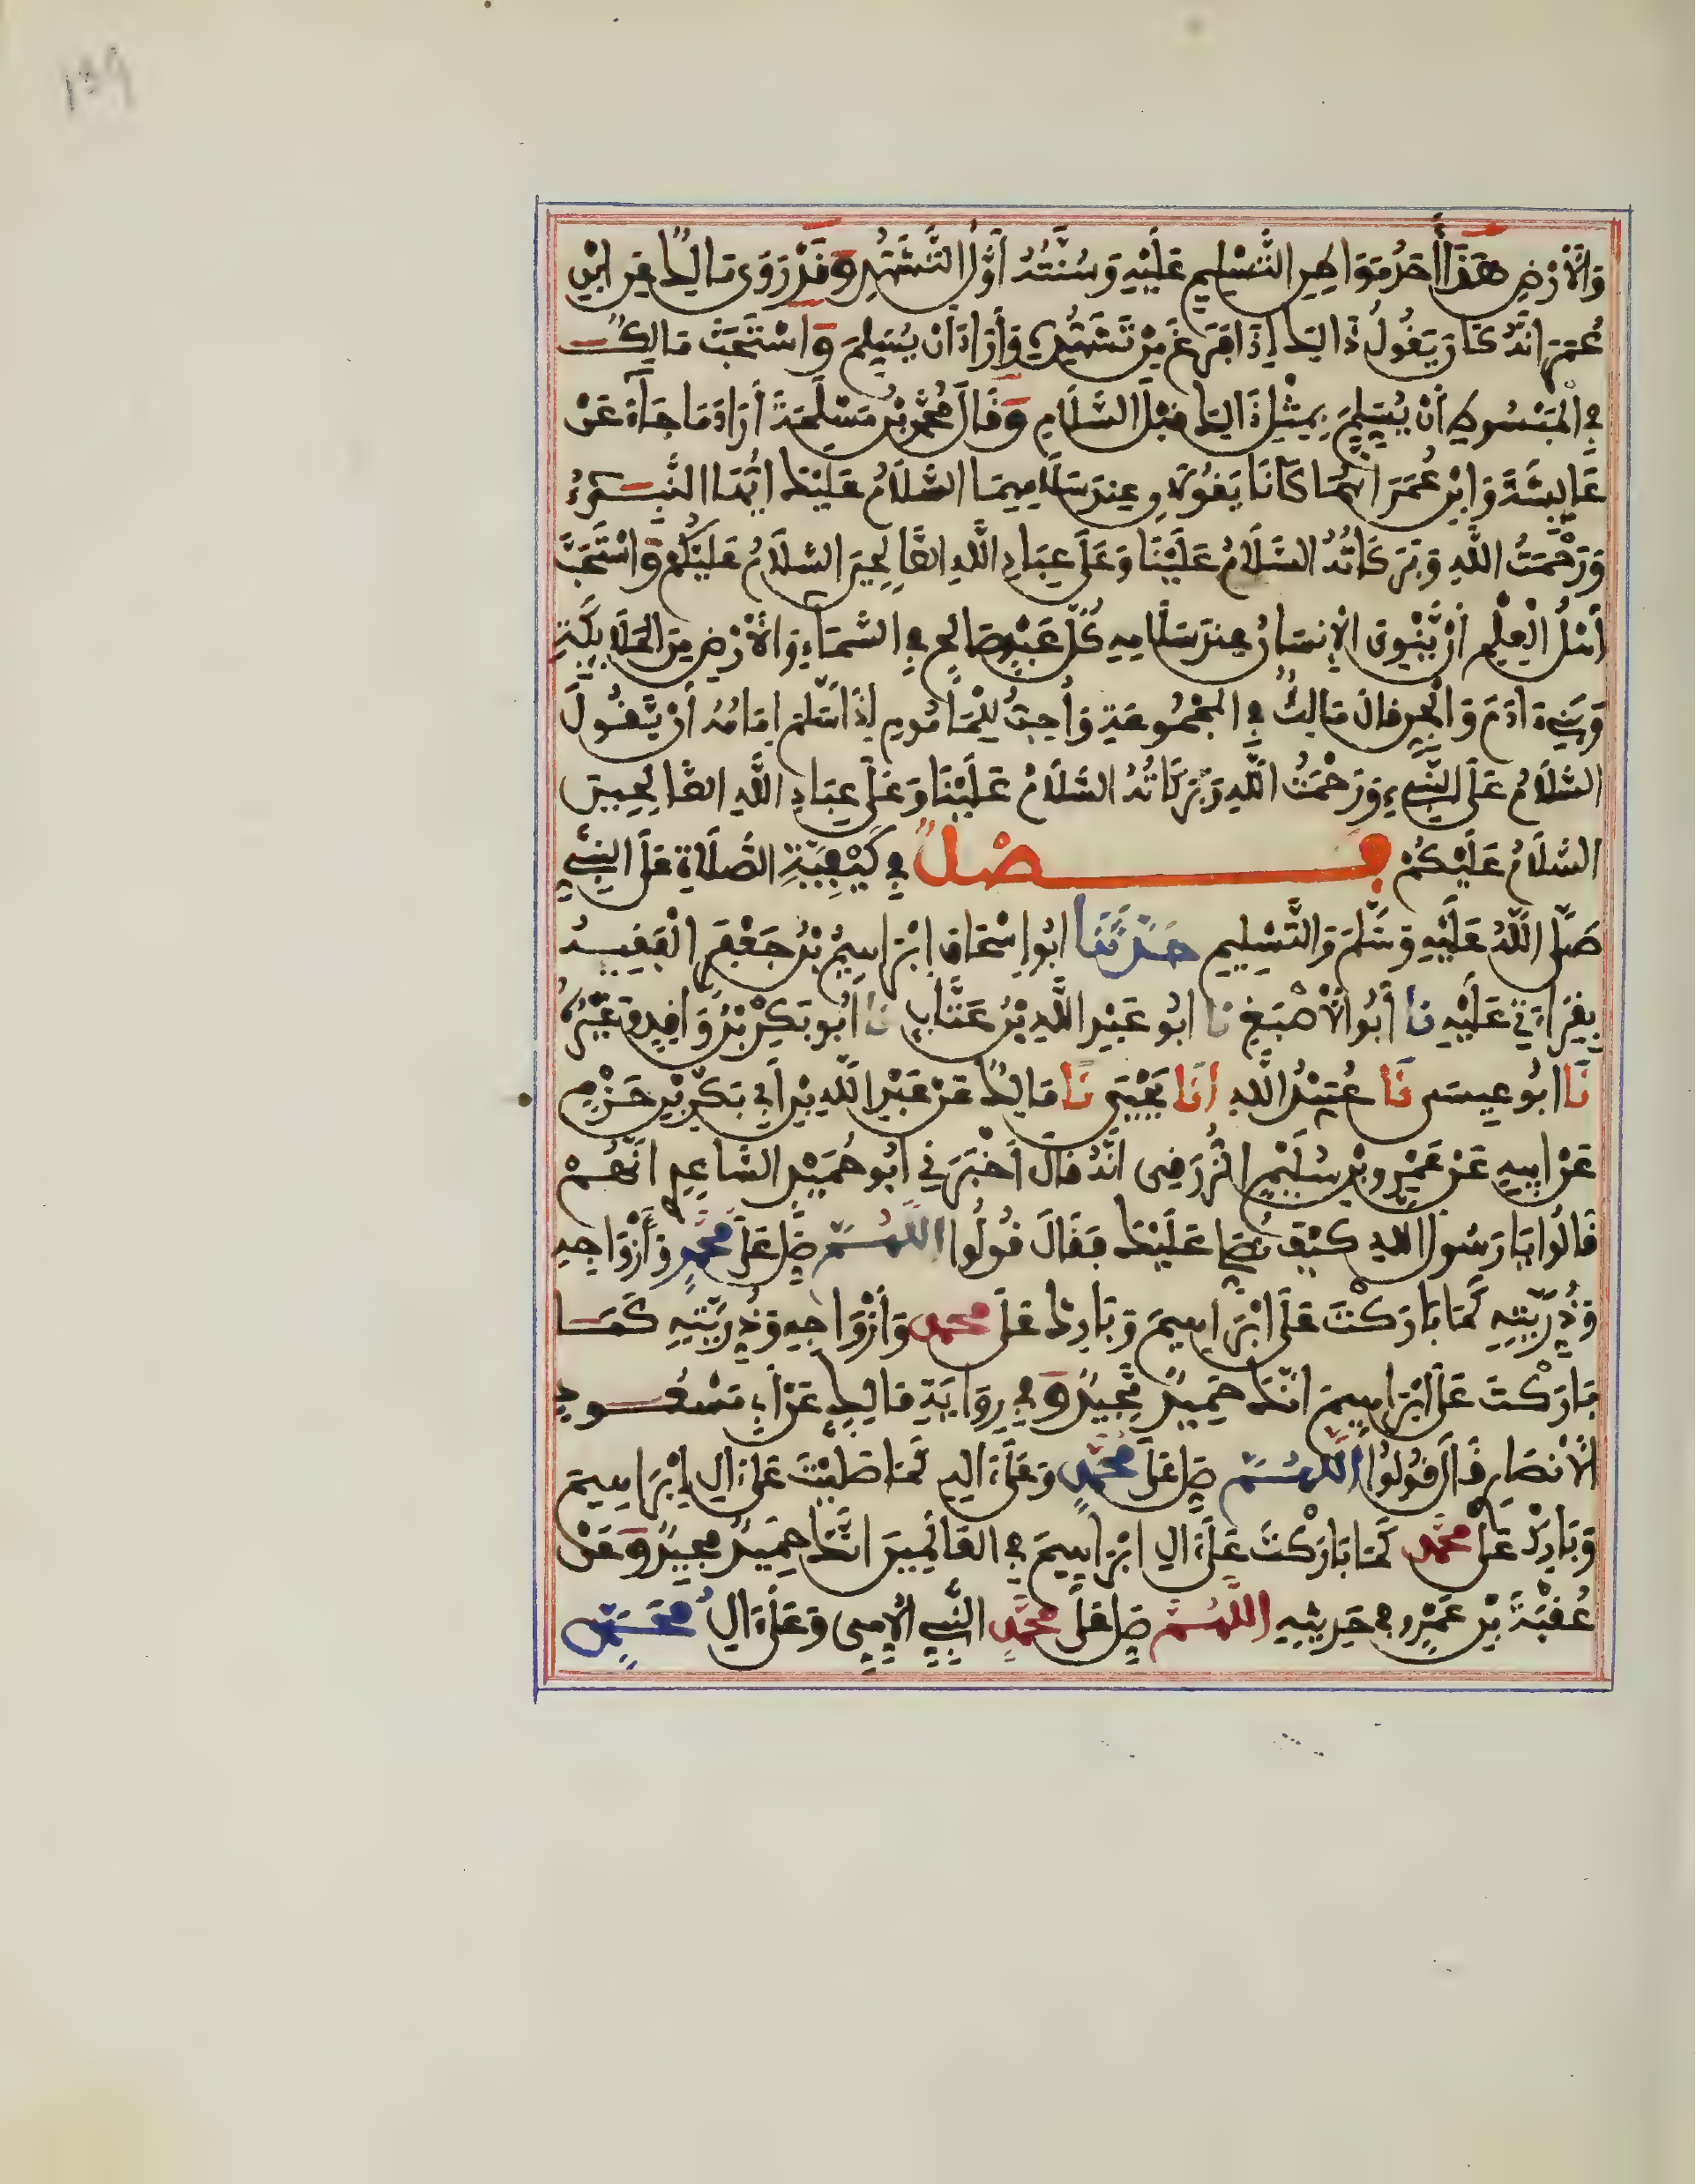 ١٣٩
وَالْأَرْضِ هَذَا أَحَدُ مَوَاطِنِ التَّسْلِيمِ عَلَيْهِ وَسُنَّتُهُ أَوَّلُ التَّشَهُّدِ وَقَدْ رَوَى مَالِكٌ عَنِ ابْنِ
عُمَرَ انَّهُ كَانَ يَقُولُ ذَالِكَ إِذَا فَرَغَ مِنْ تَشَهُّدِهِ وَأَرَادَ أَنْ يُسَلِّمَ وَاسْتَحَبَّ مَالِكٌ
فِي الْمَبْسُوطِ أَنْ يُسَلِّمَ بِمِثْلِ ذَالِكَ قَبْلَ السَّلَامِ وَقَالَ مُحَمَّدُ بْنُ مَسْلَمَةَ أَرَادَ مَا جَاءَ عَنْ
عَائِشَةَ وَابْنِ عُمَرَ انَّهُمَا كَانَا يَقُولَانِ عِنْدَ سَلَامِهِمَا السَّلَامُ عَلَيْكَ ايُّهَا النَّبِيءُ
وَرَحْمَتُ اللَّهِ وَبَرَكَاتُهُ السَّلَامُ عَلَيْنَا وَعَلَى عِبَادِ اللَّهِ الصَّالِحِينَ السَّلَامُ عَلَيْكُمْ وَاسْتَحَبَّ
أَهْلُ الْعِلْمِ أَنْ يَّنْوِيَ الْإِنْسَانُ عِنْدَ سَلَامِهِ كُلَّ عَبْدٍ صَالِحٍ فِي السَّمَاءِ وَالْأَرْضِ مِنَ الْمَلَائِكَةِ
وَبَنِي ءَادَمَ وَالْجِنِّ قَالَ مَالِكٌ فِي الْمَجْمُوعَةِ وَأُحِبُّ لِلْمَأْمُومِ إِذَا سَلَّمَ امَامُهُ أَنْ يَّقُولَ
السَّلَامُ عَلَى النَّبِيءِ وَرَحْمَتُ اللَّهِ وَبَرَكَاتُهُ السَّلَامُ عَلَيْنَا وَعَلَى عِبَادِ اللَّهِ الصَّالِحِينَ
السَّلَامُ عَلَيْكُمْ فَصْلٌ فِي كَيْفِيَّةِ الصَّلَاةِ عَلَى النَّبِيءِ
صَلَّى اللَّهُ عَلَيْهِ وَسَلَّمَ وَالتَّسْلِيمِ حَدَّثَنَا ابُو إِسْحَاقَ ابْرَاهِيمُ بْنُ جَعْفَرٍ الْفَقِيهُ
بِقِرَاءَتِي عَلَيْهِ نَا أَبُو الْأَصْبَغِ نَا ابُو عَبْدِ اللَّهِ بْنُ عَتَّابٍ نَا ابُو بَكْرِ بْنُ وَافِدٍ وَغَيْرُهُ
نَا ابُو عِيسَى نَا عُبَيْدُ اللَّهِ انَا يَحْيَى نَا مَالِكٌ عَنْ عَبْدِ اللَّهِ بْنِ أَبِي بَكْرِ بْنِ حَزْمٍ
عَنَ ابِيهِ عَنْ عَمْرِو بْنِ سُلَيْمٍ الزُّرَقِيِّ انَّهُ قَالَ أَخْبَرَنِي ابُو حُمَيْدٍ السَّاعِدِي انَّهُمْ
قَالُوا يَا رَسُولَ اللَّهِ كَيْفَ نُصَلِّي عَلَيْكَ فَقَالَ قُولُوا اللَّهُمَّ صَلِّ عَلَى مُحَمَّدٍ وَأَزْوَاجِهِ
وَذُرِّيَّتِهِ كَمَا بَارَكْتَ عَلَى ابْرَاهِيمَ وَبَارِكْ عَلَى مُحَمَّدٍ وَأَزْوَاجِهِ وَذُرِّيَّتِهِ كَمَا
بَارَكْتَ عَلَى ابْرَاهِيمَ انَّكَ حَمِيدٌ مَّجِيدٌ وَفِي رِوَايَةِ مَالِكٍ عَنَ ابِي مَسْعُودٍ
الْأَنْصَارِي قَالَ قُولُوا اللَّهُمَّ صَلِّ عَلَى مُحَمَّدٍ وَعَلَى ءَالِهِ كَمَا صَلَّيْتَ عَلَى ءَالِ إِبْرَاهِيمَ
وَبَارِكْ عَلَى مُحَمَّدٍ كَمَا بَارَكْتَ عَلَى ءَالِ ابْرَاهِيمَ فِي الْعَالَمِينَ انَّكَ حَمِيدٌ مَجِيدٌ وَعَنْ
عُقْبَةَ بْنِ عَمْرٍو فِي حَدِيثِهِ اللَّهُمَّ صَلِّ عَلَى مُحَمَّدٍ النَّبِيءِ الْأُمِّيِّ وَعَلَى ءَالِ مُحَمَّدٍ